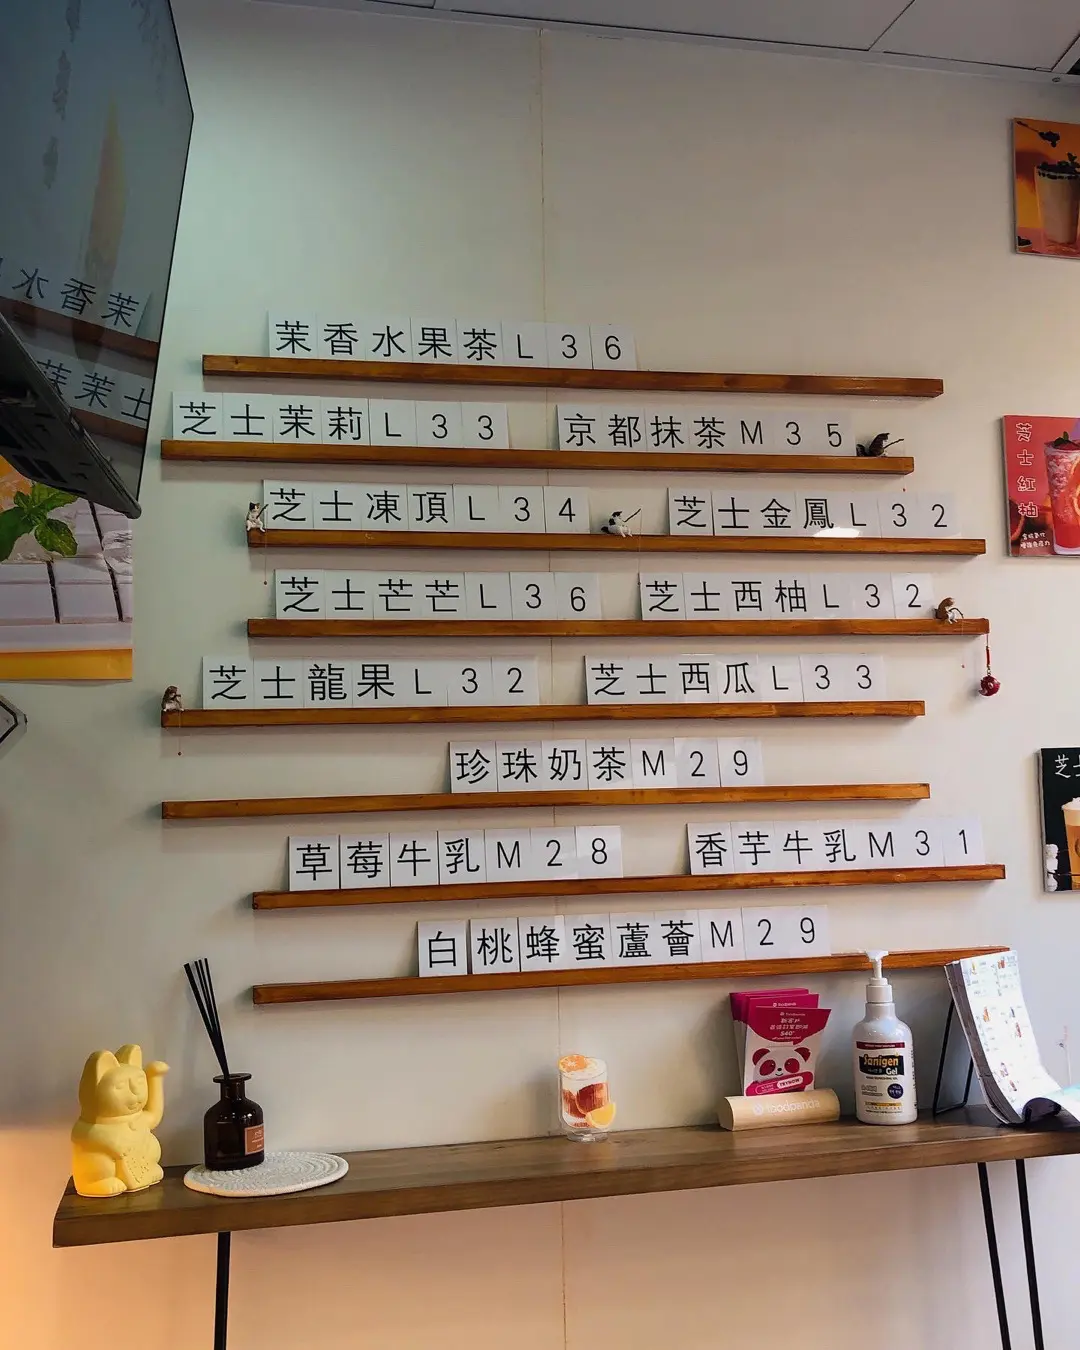 茉香水果茶L36
芝士茉莉L33 京都抹茶M35
芝士凍頂L34 芝士金鳳L32
芝士芒芒L36 芝士西柚L32
芝士龍果L32 芝士西瓜L33
珍珠奶茶M29
草莓牛乳M28 香芋牛乳M31
白桃蜂蜜蘆薈M29
芝士紅柚
芝士
foodpanda
$40
foodpanda
Sanigen
Gel